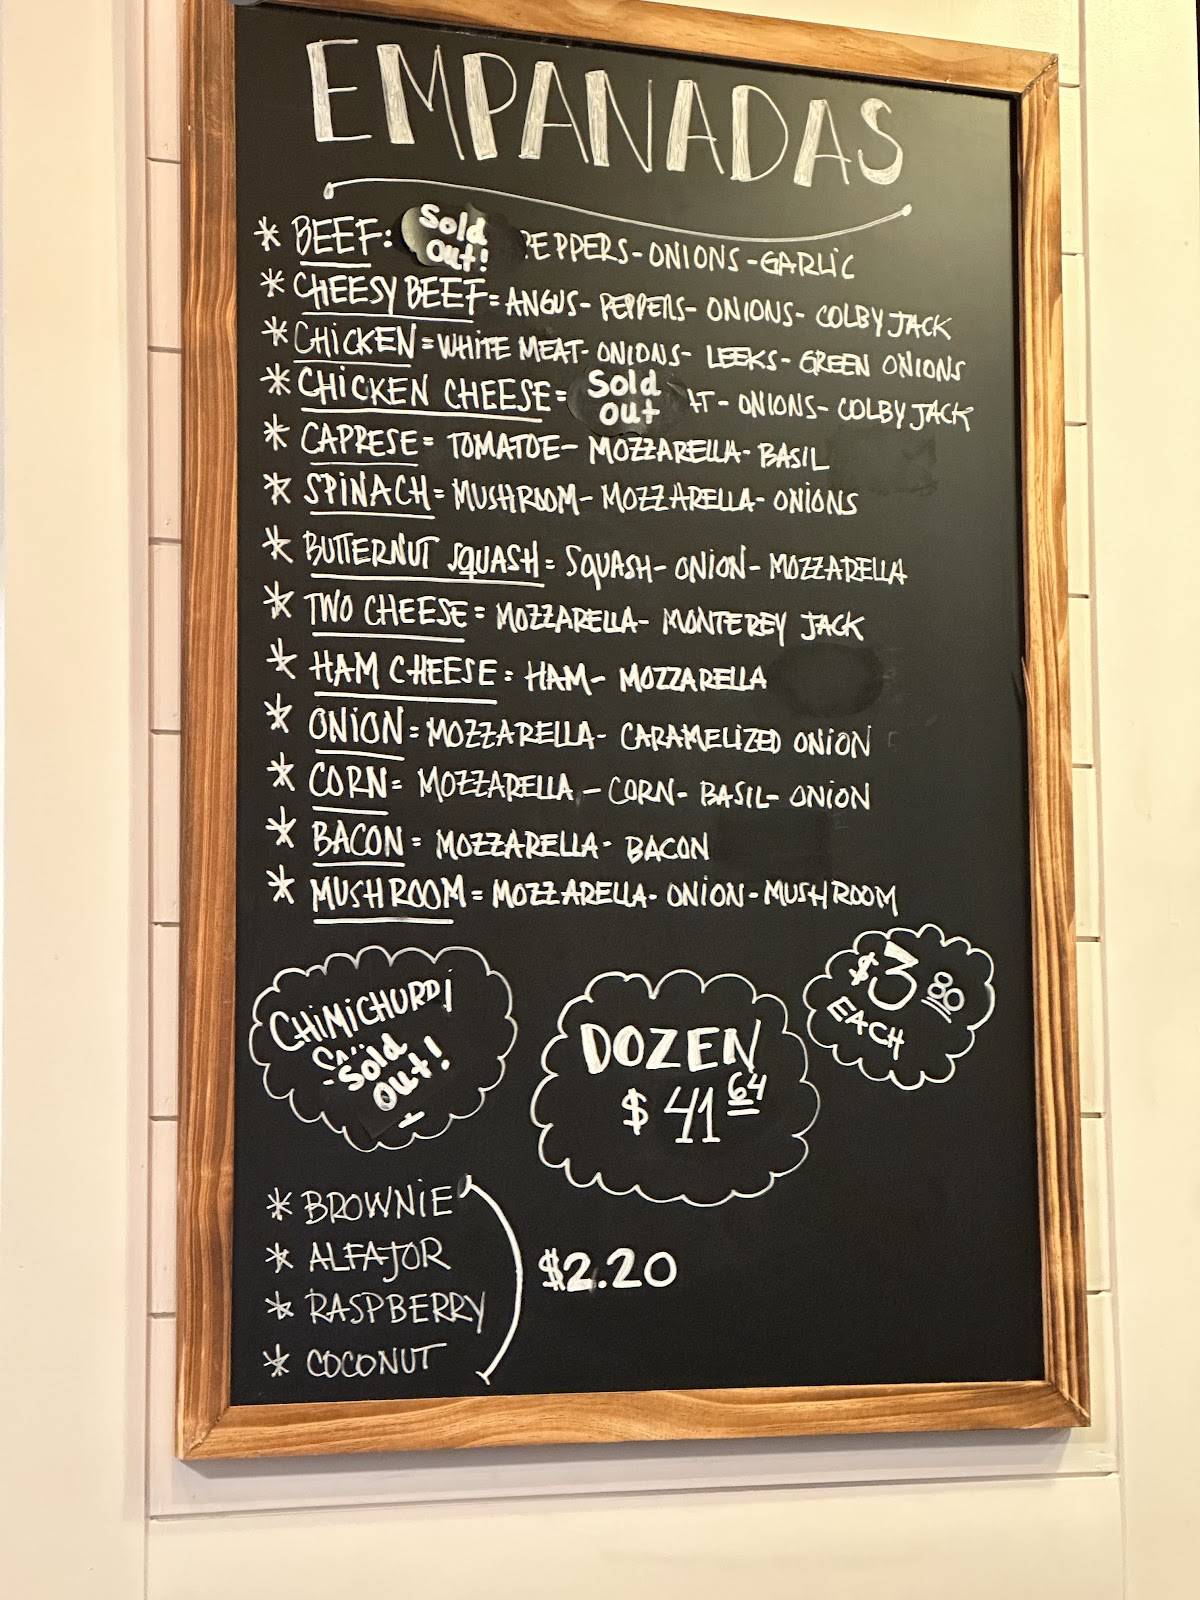 EMPANADAS
* BEEF: Sold Out! PEPPERS-ONIONS-GARLIC
* CHEESY BEEF = ANGUS- PEPPERS- ONIONS- COLBY JACK
* CHICKEN = WHITE MEAT- ONIONS- LEEKS- GREEN ONIONS
* CHICKEN CHEESE= Sold out AT - ONIONS- COLBY JACK
* CAPRESE = TOMATOE- MOZZARELLA- BASIL
* SPINACH = MUSHROOM- MOZZARELLA- ONIONS
* BUTTERNUT SQUASH = SQUASH- ONION- MOZZARELLA
* TWO CHEESE = MOZZARELLA- MONTEREY JACK
* HAM CHEESE = HAM- MOZZARELLA
* ONION = MOZZARELLA- CARAMELIZED ONION
* CORN= MOZZARELLA - CORN- BASIL- ONION
* BACON = MOZZARELLA- BACON
* MUSHROOM = MOZZARELLA- ONION - MUSHROOM
$3 80
EACH
CHIMICHURRI
Sold
out!
DOZEN
$ 41 64
* BROWNIE
* ALFAJOR
* RASPBERRY
* COCONUT
$2.20